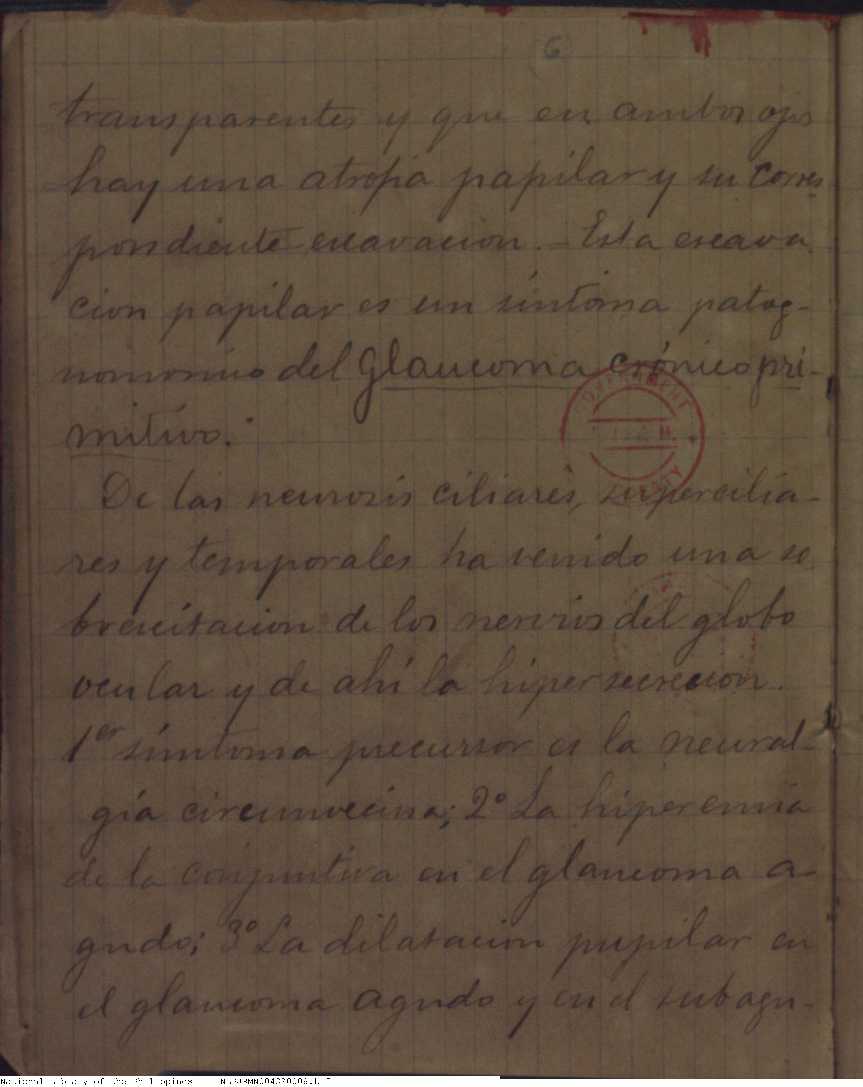 6
transparentes y que en ambos ojos
hay una atrofia papilar y su corres
pondiente escavacion. Esta escava
cion papilar es un síntoma patog-
nomonico del Glaucoma crónico pri-
mitivo.
De las neurosis ciliares, supercilia-
res y temporales ha venido una so
brexcitacion de los nervios del globo
ocular y de ahí la hipersecrecion.
1er síntoma precursor es la neural-
gía circunvecina; 2º La hiperemia
de la conjuntiva en el glaucoma a-
gudo; 3º La dilatacion pupilar en
el glaucoma agudo y en el subagu-
National Library of the Philippines